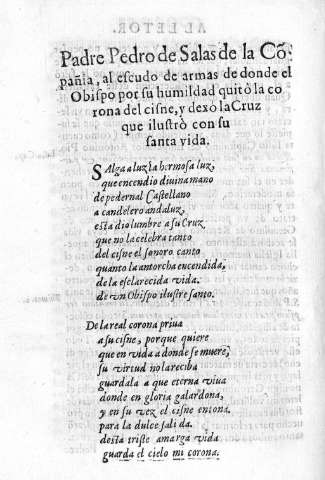 Padre Pedro de Salas de la Cõ-
pañia, al escudo de armas de donde el
Obispo por su humildad quitò la co
rona del cisne, y dexò la Cruz
que ilustrò con su
santa vida.
SAlga a luz la hermosa luz,
que encendio divina mano
de pedernal Castellano
a candelero andaluz,
esta dio lumbre a su Cruz
que no la celebra tanto
del cisne el sonoro canto
quanto la antorcha encendida,
de la esclarecida vida.
de vn Obispo ilustre santo.
De la real corona priua
a su cisne, porque quiere
que en vida a donde se muere,
su virtud no la reciba
guardala a que eterna viua
donde en gloria galardona,
y en su vez el cisne entona.
para la dulce salida.
desta triste amarga vida
guarda el cielo mi corona.